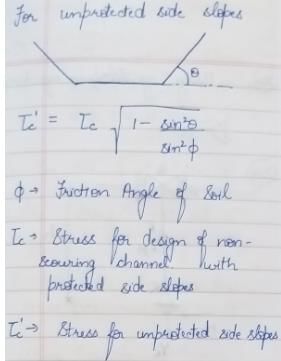 For unprotected side slopes
θ
τc' = τc √(1 - sin²θ / sin²φ)
φ → Friction Angle of Soil
τc → Stress for design of non-
scouring channel with
protected side slopes
τc' → Stress for unprotected side slopes